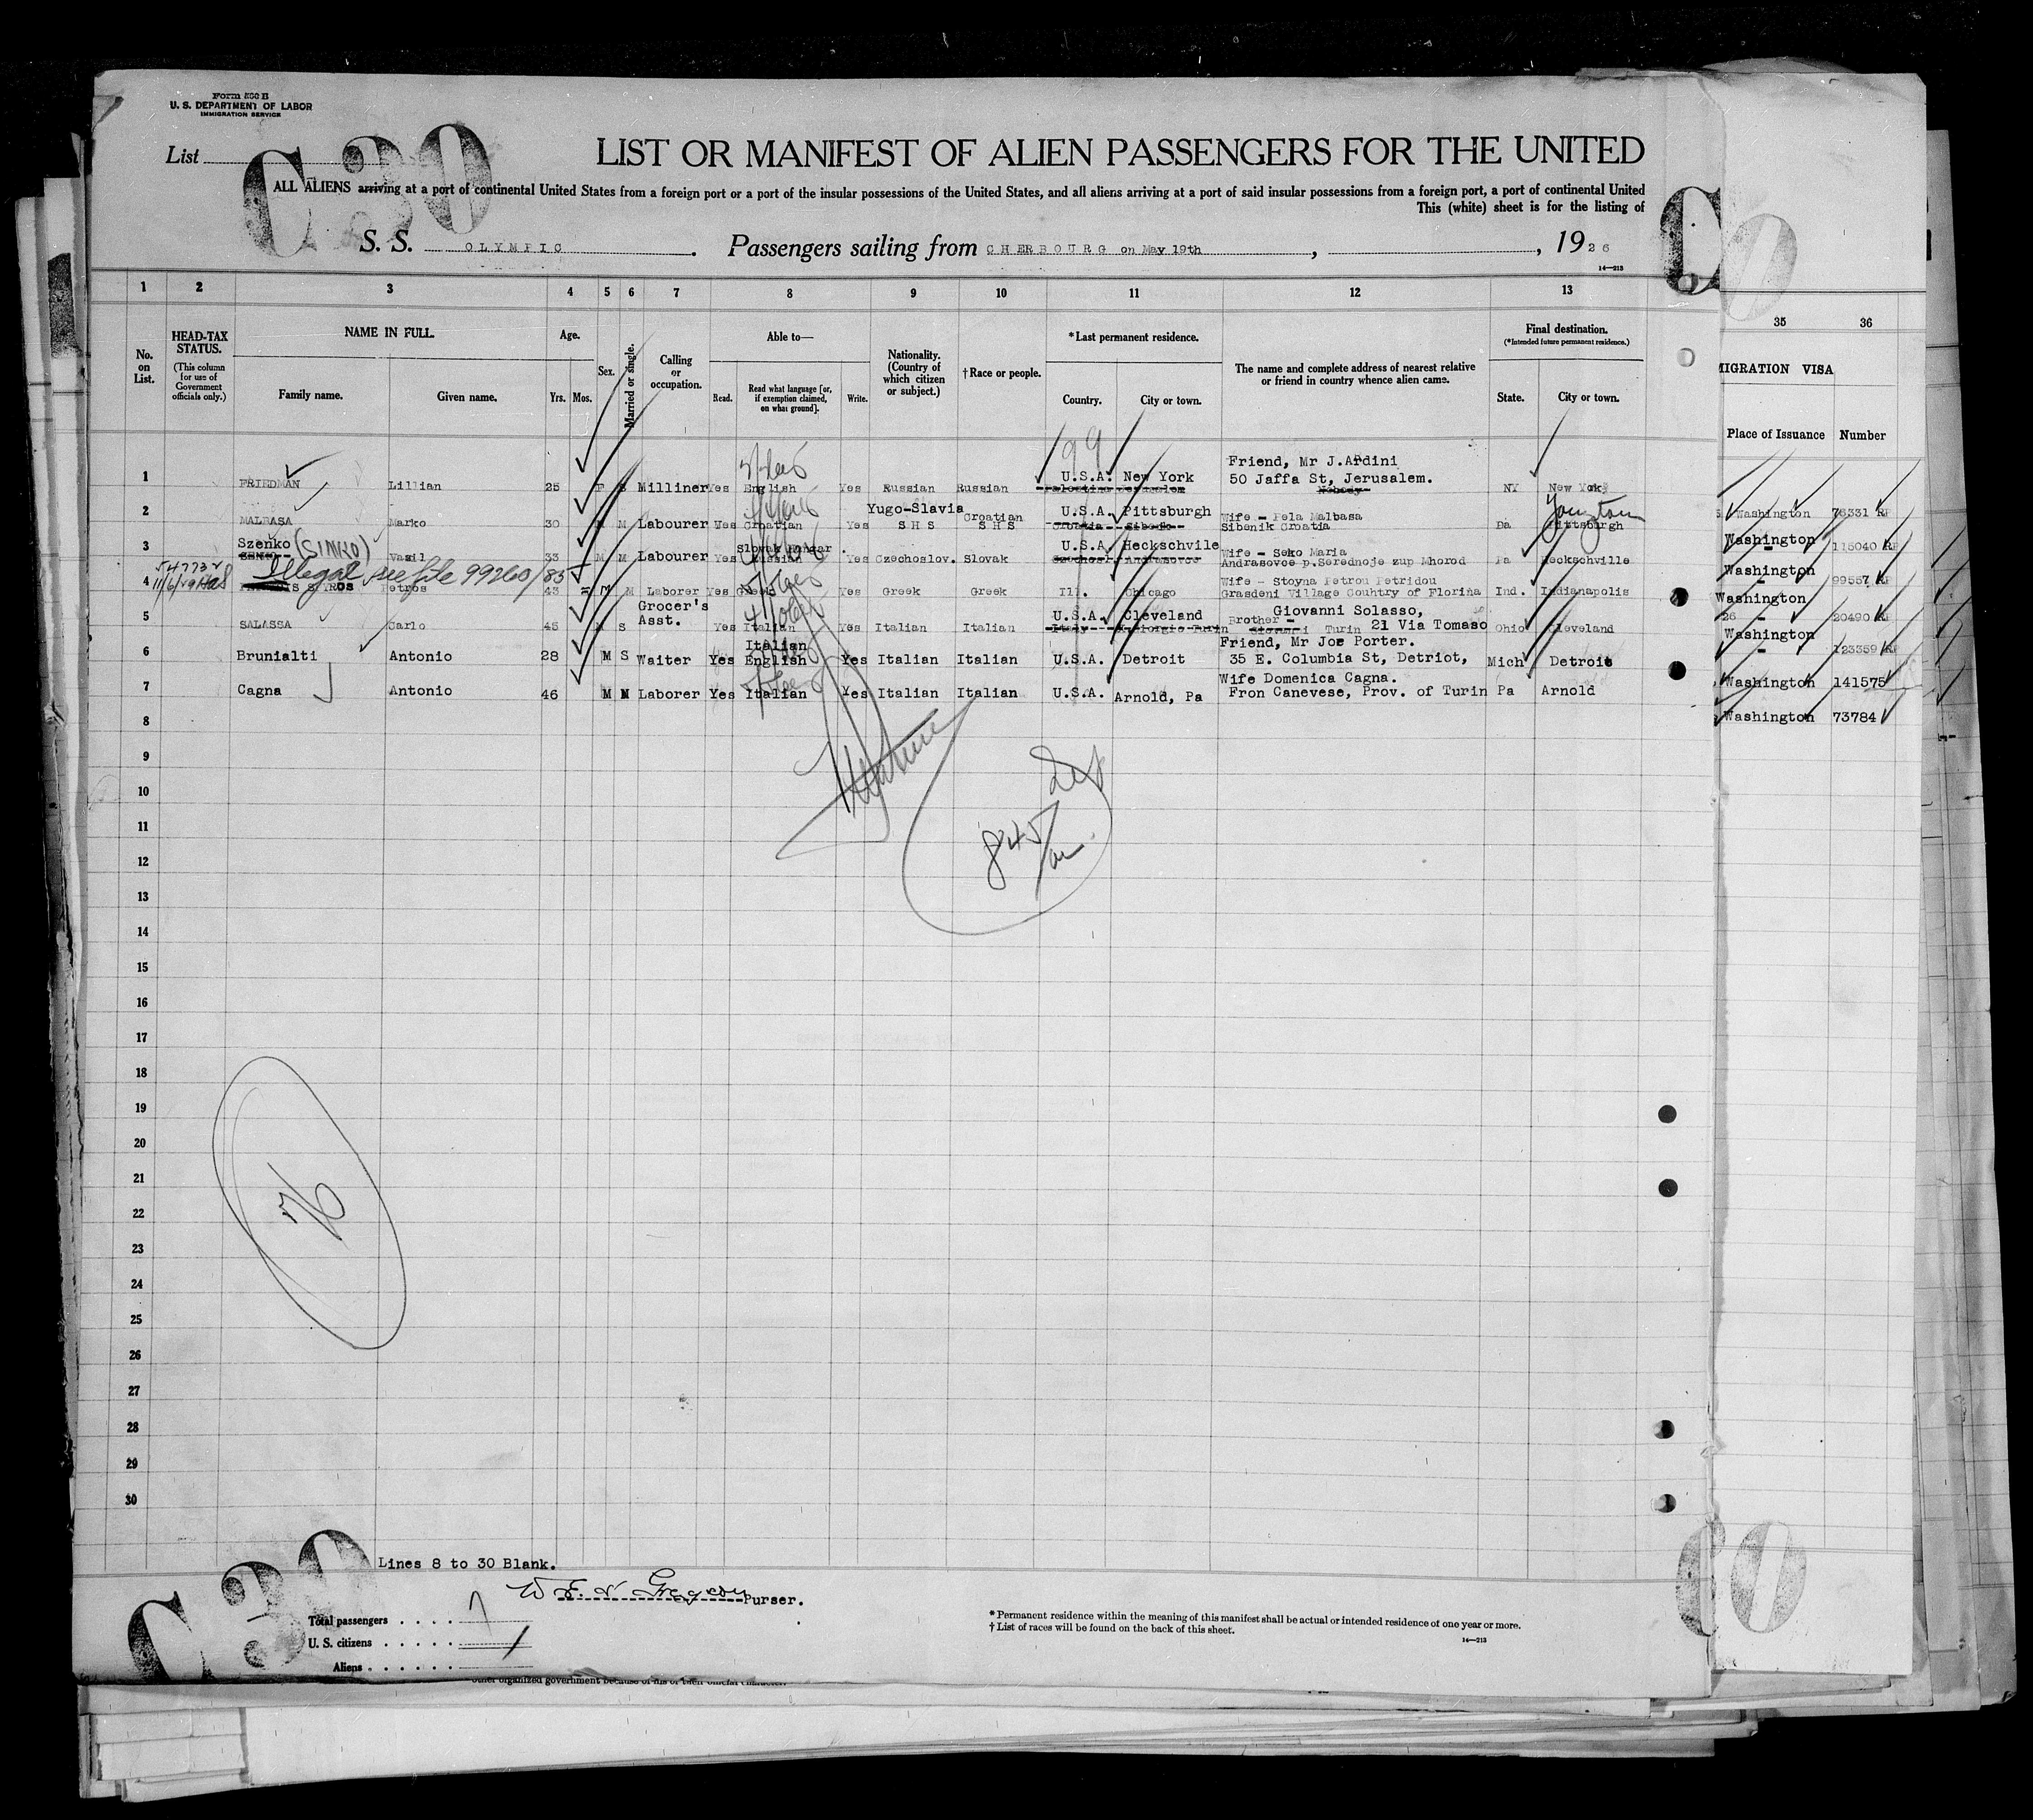 Form 500 B
U. S. DEPARTMENT OF LABOR
IMMIGRATION SERVICE
List
C 30
LIST OR MANIFEST OF ALIEN PASSENGERS FOR THE UNITED
ALL ALIENS arriving at a port of continental United States from a foreign port or a port of the insular possessions of the United States, and all aliens arriving at a port of said insular possessions from a foreign port, a port of continental United
This (white) sheet is for the listing of
S. S. OLYMPIC. Passengers sailing from CHERBOURG on May 19th, , 1926
14—213
1 2 3 4 5 6 7 8 9 10 11 12 13 35 36
No. on List.
HEAD-TAX STATUS.
(This column for use of Government officials only.)
NAME IN FULL.
Family name. Given name.
Age.
Yrs. Mos.
Sex.
Married or single.
Calling or occupation.
Able to—
Read. Read what language [or, if exemption claimed, on what ground]. Write.
Nationality. (Country of which citizen or subject.)
†Race or people.
*Last permanent residence.
Country. City or town.
The name and complete address of nearest relative or friend in country whence alien came.
Final destination.
(*Intended future permanent residence.)
State. City or town.
MIGRATION VISA
Place of Issuance Number
99
Friend, Mr J.Ardini
1 FRIEDMAN Lillian 25 F S Milliner Yes English Yes Russian Russian U.S.A. New York 50 Jaffa St, Jerusalem. NY New York
Palestine Jerusalem Nobody
Washington 76331 RP
2 MALBASA Marko 30 M M Labourer Yes Croatian Yes Yugo-Slavia S H S Croatian S H S U.S.A. Pittsburgh Wife - Pela Malbasa Pa Pittsburgh
Croatia Sibenik Sibenik Croatia
Washington 115040 RP
3 Szenko (SINKO) Vasil 33 M M Labourer Yes Slovak Russian Yes Czechoslov. Slovak U.S.A. Heckschvile Wife - Seko Maria Pa Heckschville
Andrasovce Andrasovce p.Serednoje zup Mhorod
Washington 99557 RP
547732
11/6/29
Illegal see file 99260/85
4 SPIROS Petros 43 M M Laborer Yes Greek Yes Greek Greek Ill. Chicago Wife - Stoyna Petrou Petridou Ind. Indianapolis
Grasdeni Village Couhtry of Florina
Washington
20490 RP
5 SALASSA Carlo 45 M S Grocer's Asst. Yes Italian Yes Italian Italian U.S.A. Cleveland Brother - Giovanni Solasso, Ohio Cleveland
Italy Giovanni Turin 21 Via Tomaso
Washington 123359 RP
6 Brunialti Antonio 28 M S Waiter Yes Italian English Yes Italian Italian U.S.A. Detroit Friend, Mr Joe Porter. Mich Detroit
35 E. Columbia St, Detriot,
Washington 141575
7 Cagna Antonio 46 M M Laborer Yes Italian Yes Italian Italian U.S.A. Arnold, Pa Wife Domenica Cagna. Pa Arnold
Fron Canevese, Prov. of Turin
Washington 73784
8
9
10
11
12
13
14
15
16
17
18
19
20
21
22
23
24
25
26
27
28
29
30
845
C 30
Lines 8 to 30 Blank.
Purser.
Total passengers . . . . 7
U. S. citizens . . . . .
Aliens . . . . . .
* Permanent residence within the meaning of this manifest shall be actual or intended residence of one year or more.
† List of races will be found on the back of this sheet.
14—213
other organized government because of his or their official character.